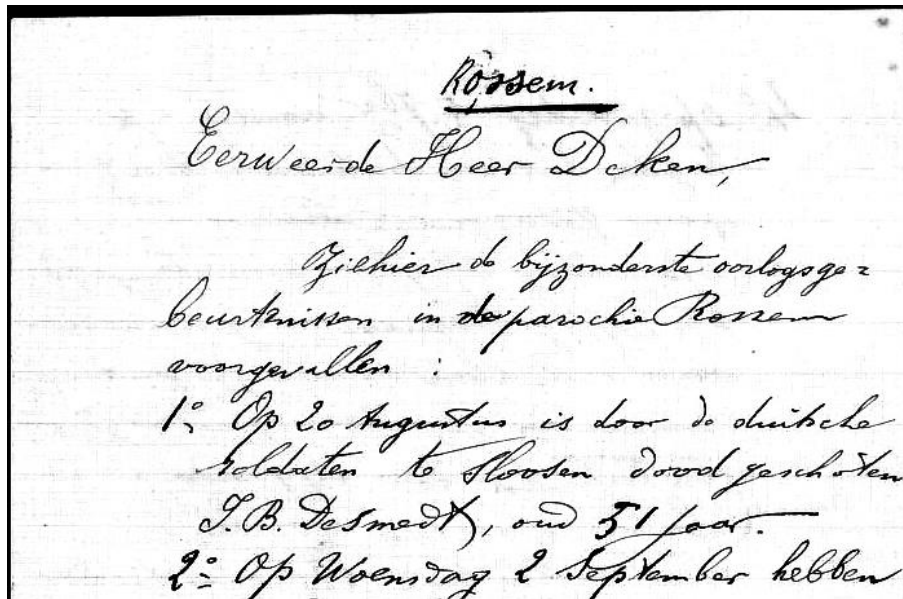 Rossem.
Eerweerde Heer Deken,
Ziehier de bijzonderste oorlogsge=
beurtknissen in de parochie Rossem
voorgevallen :
1º Op 20 Augustus is door de duitsche
soldaten te Sloosen dood geschoten
J. B. DeSmedt, oud 51 jaar. —
2º Op Woensdag 2 September hebben